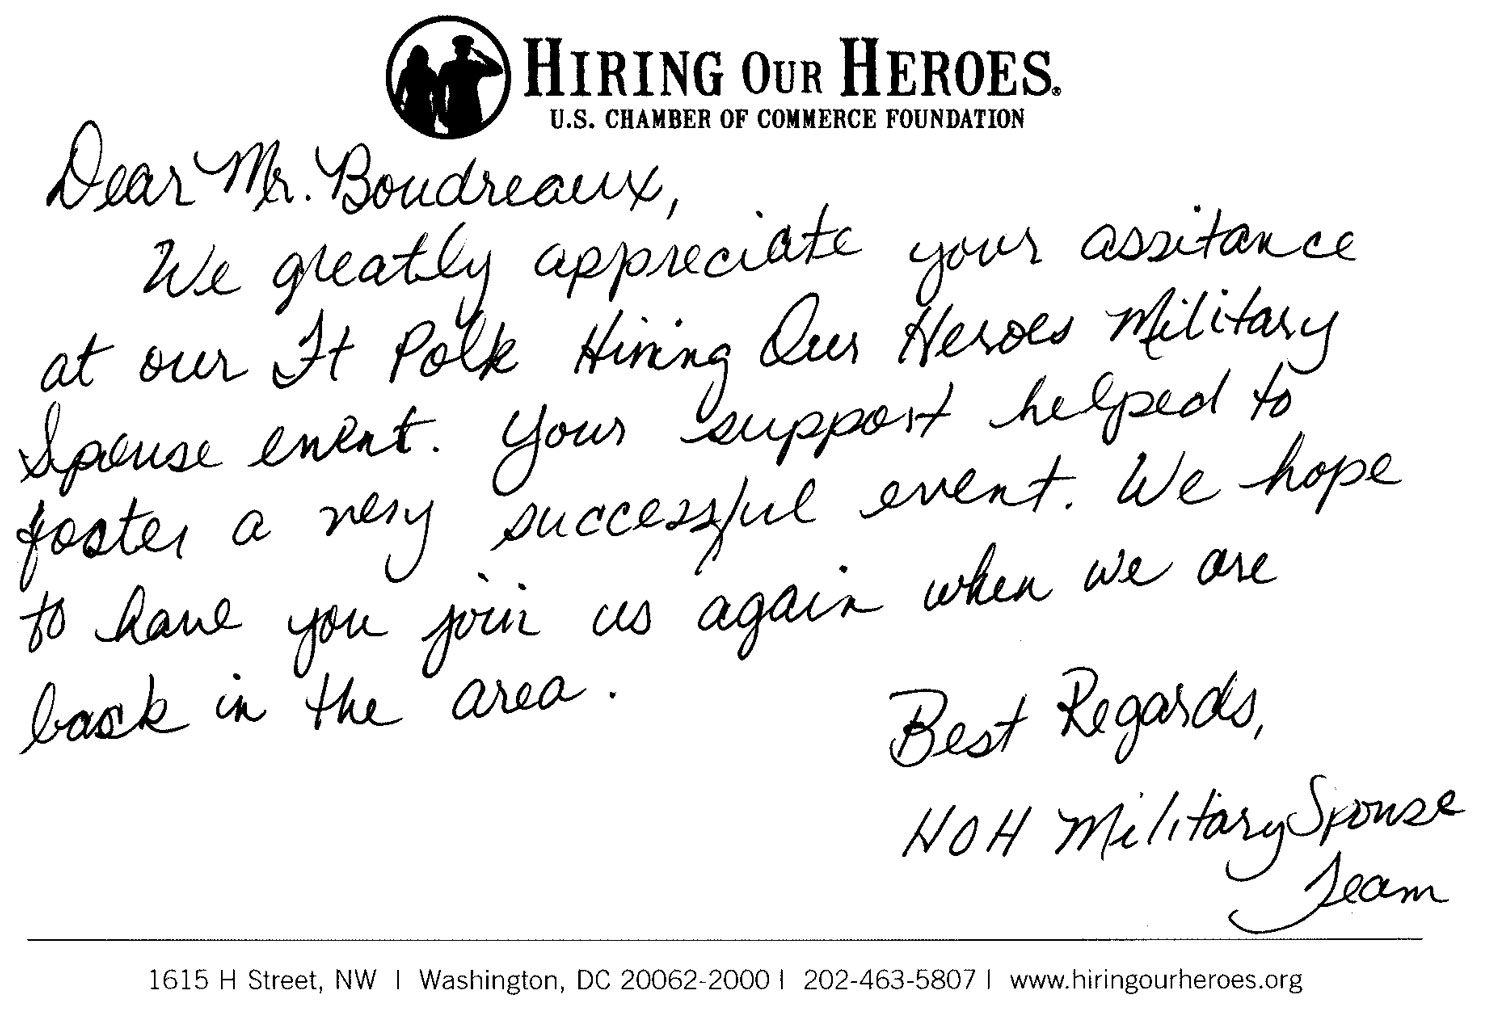 HIRING OUR HEROES®
U.S. CHAMBER OF COMMERCE FOUNDATION
Dear Mr. Boudreaux,
We greatly appreciate your assitance
at our Ft Polk Hiring Our Heroes Military
Spouse event. Your support helped to
foster a very successful event. We hope
to have you join us again when we are
back in the area.
Best Regards,
HOH Military Spouse
Team
1615 H Street, NW | Washington, DC 20062-2000 | 202-463-5807 | www.hiringourheroes.org